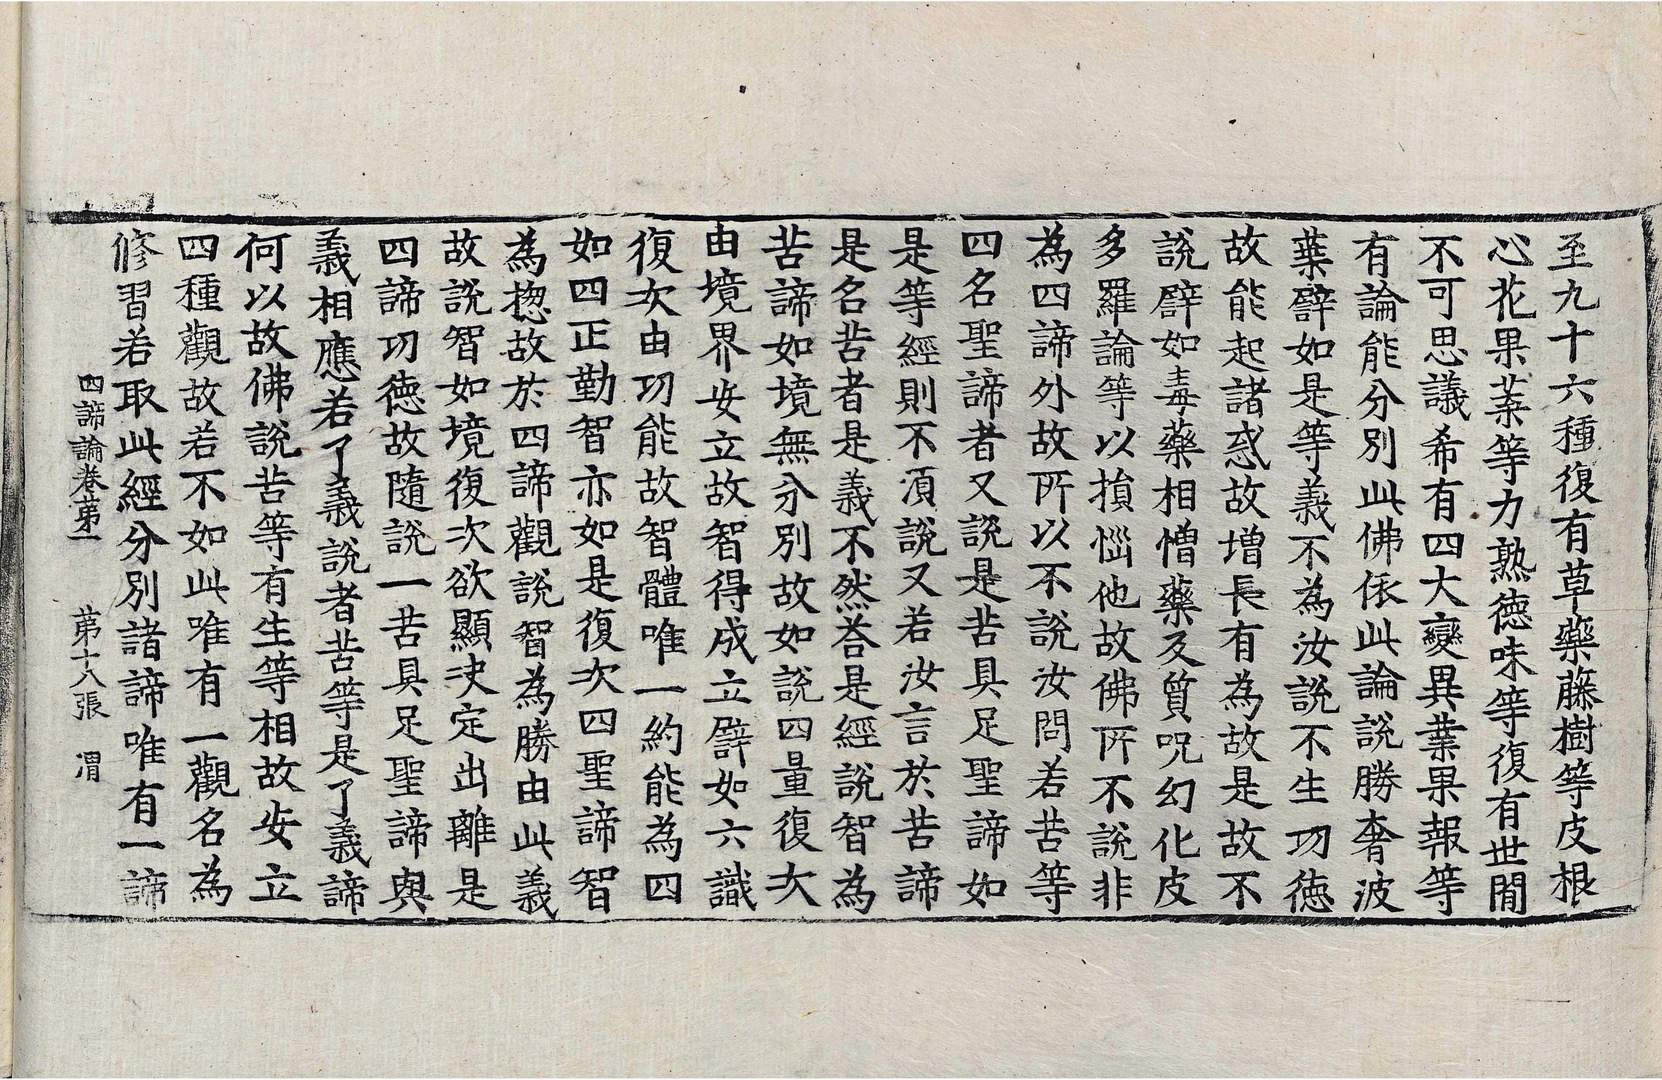 至九十六種復有草藥藤樹等皮根
心花果葉等力熟德味等復有世間
不可思議希有四大變異業果報等
有論能分別此佛依此論說勝奢波
葉譬如是等義不為汝說不生功德
故能起諸惑故增長有為故是故不
說譬如毒藥相憎藥及質呪幻化皮
多羅論等以損惱他故佛所不說非
為四諦外故所以不說汝問若苦等
四名聖諦者又說是苦具足聖諦如
是等經則不湏說又若汝言於苦諦
是名苦者是義不然荅是經說智為
苦諦如境無分別故如說四量復次
由境界安立故智得成立譬如六識
復次由功能故智體唯一約能為四
如四正勤智亦如是復次四聖諦智
為揔故於四諦觀說智為勝由此義
故說智如境復次欲顯決定出離是
四諦功德故隨說一苦具足聖諦與
義相應若了義說者苦等是了義諦
何以故佛說苦等有生等相故安立
四種觀故若不如此唯有一觀名為
修習若取此經分別諸諦唯有一諦
四諦論卷第一 第十八張 渭